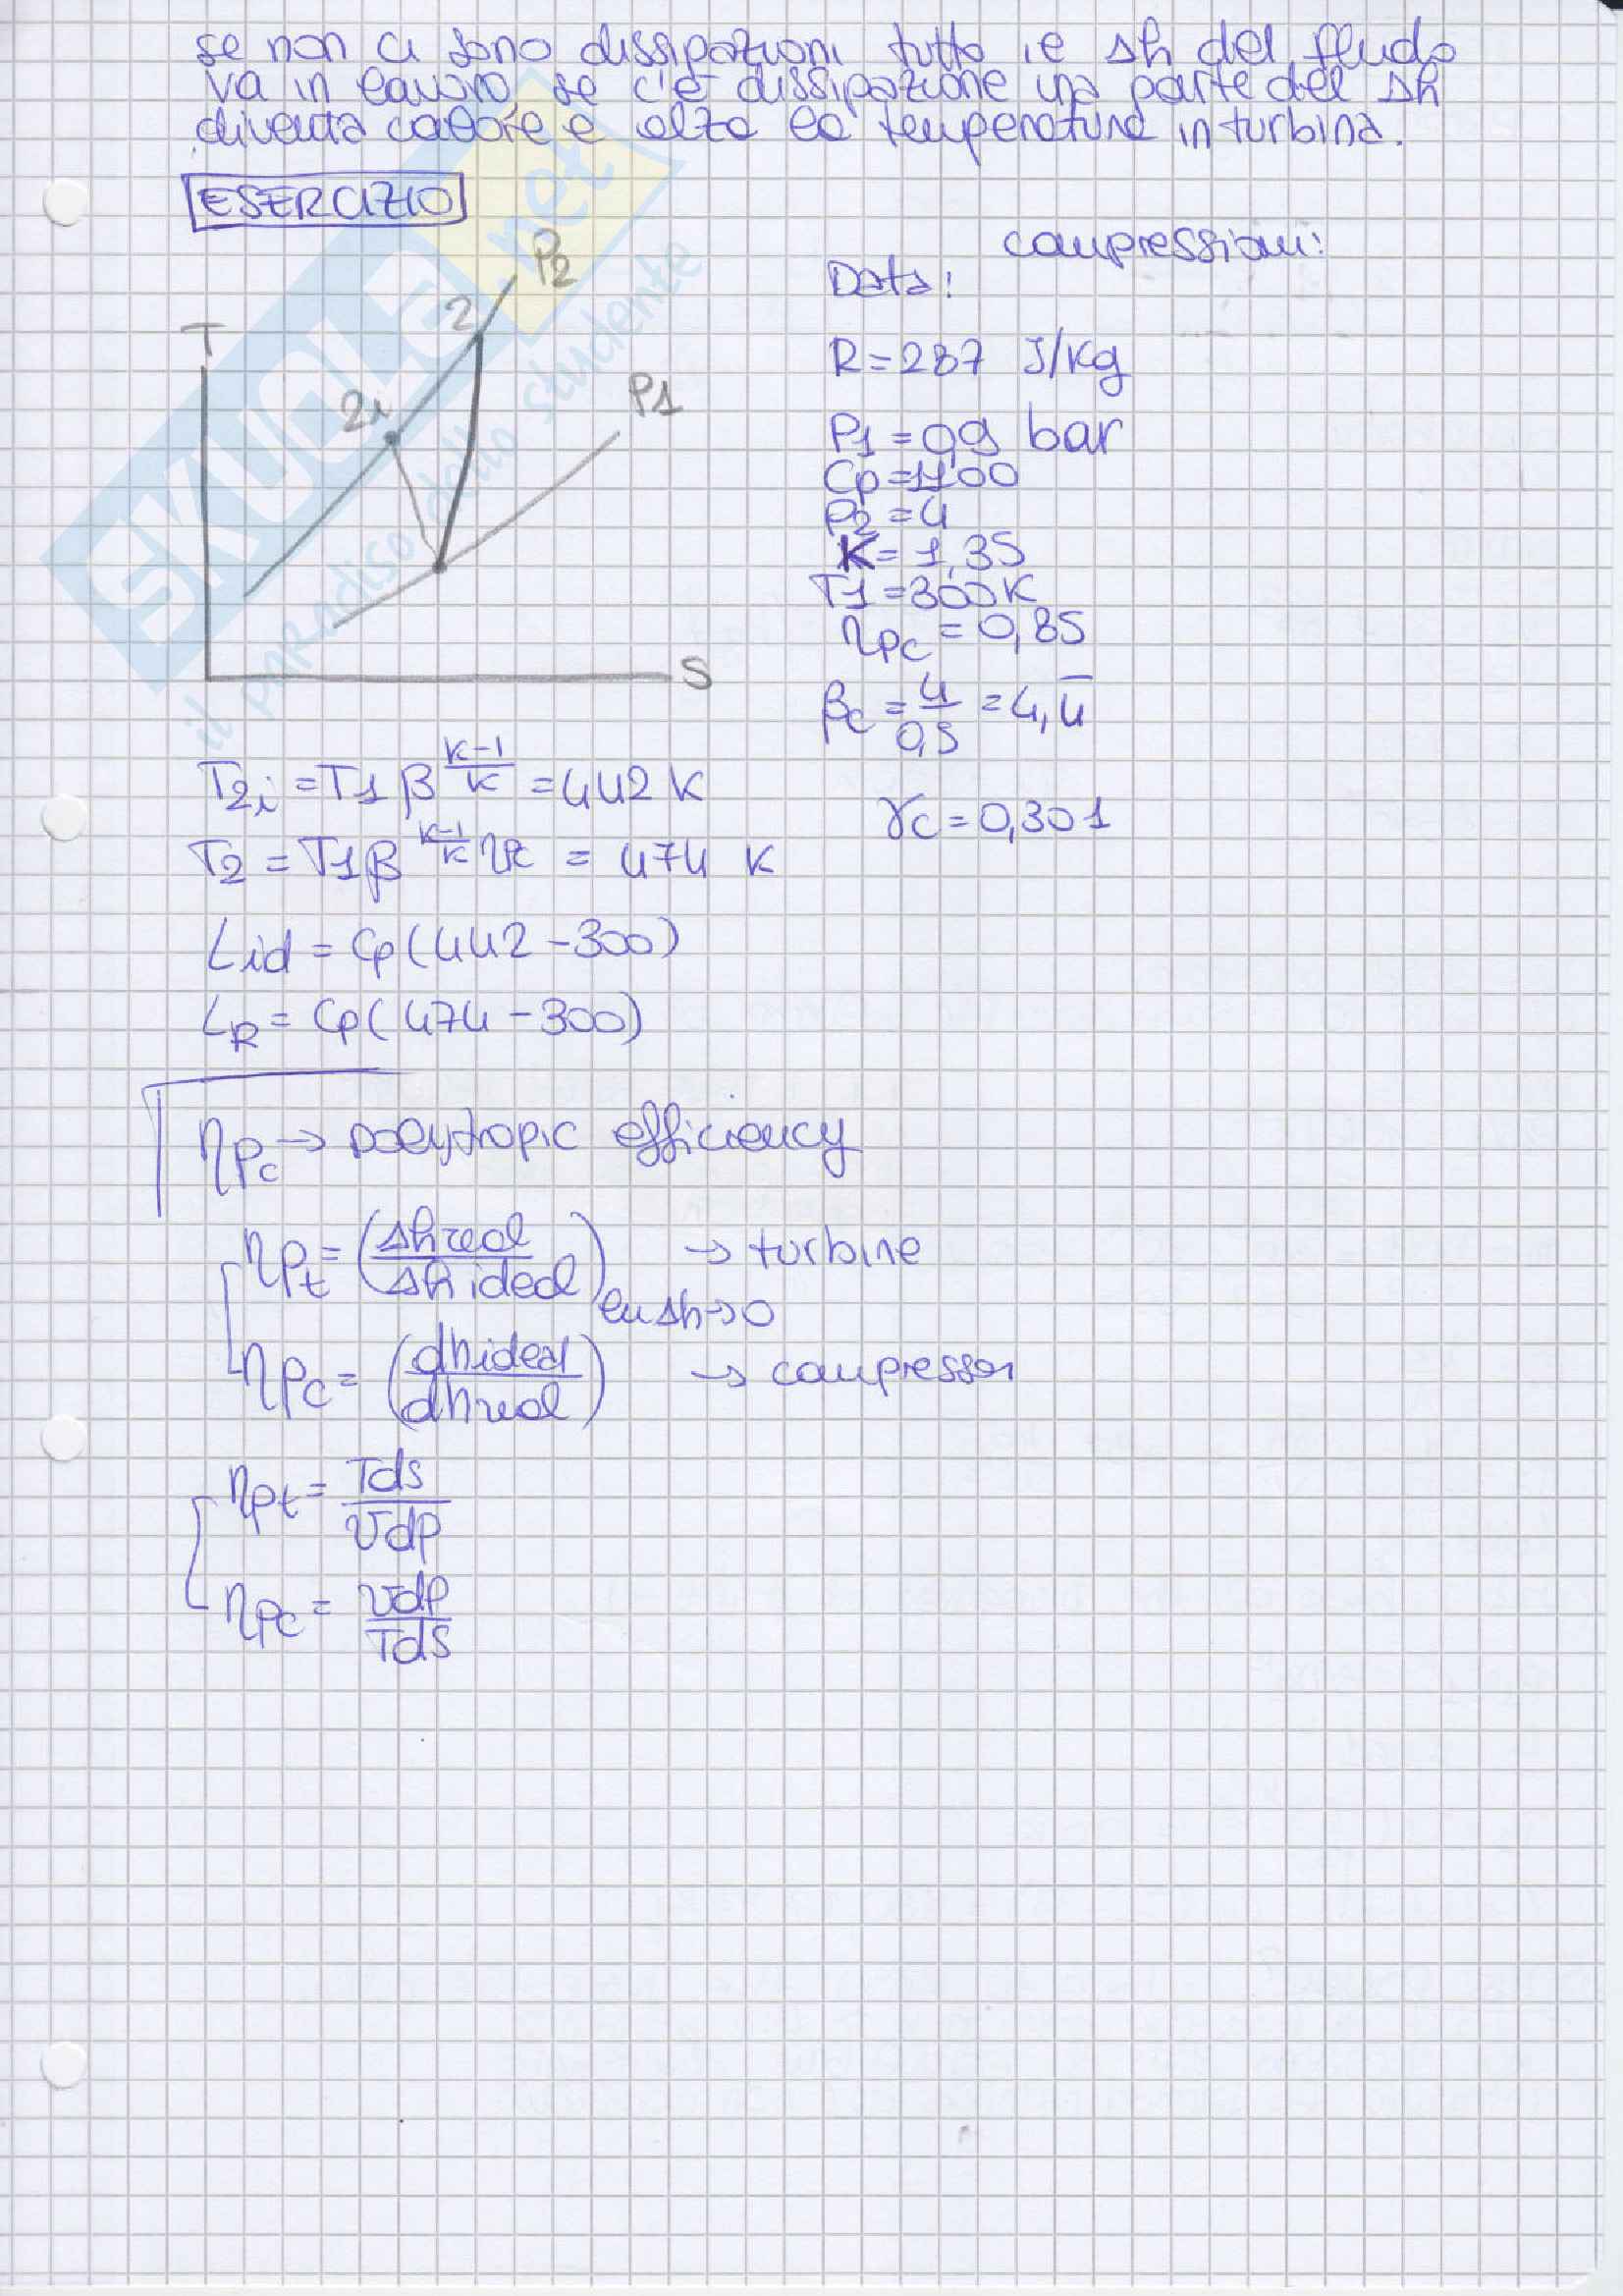 se non ci sono dissipazioni tutto il Δh del fluido
va in lavoro, se c'è dissipazione una parte del Δh
diventa calore e alza la temperatura in turbina.
ESERCIZIO
compressioni:
Data:
T
P2
2
2i
P1
S
R=287 J/Kg
P1 = 0,9 bar
Cp=1100
P2 = 4
K = 1,35
T1 = 300K
ηPc = 0,85
βc = 4/0,9 = 4,4̅
γc = 0,301
T2i = T1 β^(K-1/K) = 442 K
T2 = T1 β^(K-1/K ηc) = 474 K
Lid = Cp (442 - 300)
LR = Cp (474 - 300)
ηPc → polytropic efficiency
ηPt = (Δh real / Δh ideal) → turbine
Δh→0
ηPc = (dh ideal / dh real) → compressor
ηPt = Tds / vdp
ηPc = vdp / Tds
SKUOLA.net
il paradiso dello studente